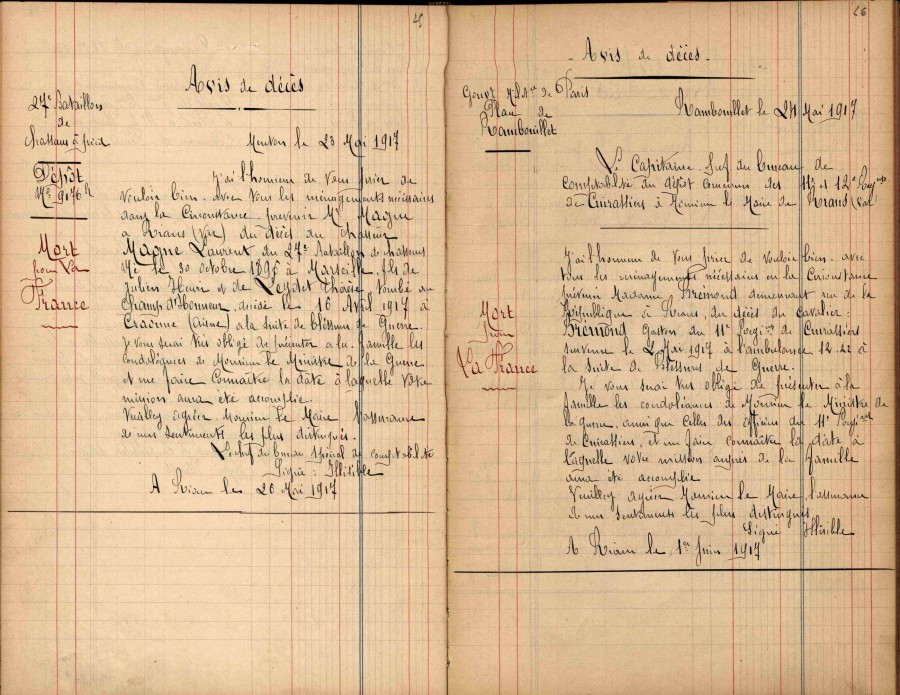 25
Avis de décès
27e Bataillon
de
Chasseurs à pied
Dépôt
No 9176 h
Mort
pour La
France
Menton le 23 Mai 1917
J'ai l'honneur de Vous prier de
Vouloir bien, avec Vous les ménagements nécessaires
dans la Circonstance prévenir Mr Magne
à Rians (Var) du décès du Chasseur
Magne Laurent du 27e Bataillon de chasseurs
Né le 30 octobre 1896 à Marseille, fils de
Julien Henri et de Leydet Thérèse, tombé au
Champ d'Honneur, décédé le 16 Avril 1917 à
Craonne (Aisne) à la suite de blessures de Guerre.
Je vous serai très obligé de présenter à la famille les
condoléances de Monsieur le Ministre de la Guerre
et me faire Connaître la date à laquelle Votre
mission aura été accomplie.
Veuillez agréer Monsieur le Maire l'assurance
de mes sentiments les plus distingués.
Le chef du bureau spécial de comptabilité
Signé : Illisible
A Rians le 26 Mai 1917
26
Avis de décès.
Gouvt Mil re de Paris
Place de
Rambouillet
Mort
pour
La France
Rambouillet le 24 Mai 1917
Le Capitaine Chef du bureau de
Comptabilité du dépôt commun des 11e et 12e Reg nts
de Cuirassiers à Monsieur le Maire de Rians (Var)
J'ai l'honneur de vous prier de vouloir bien, avec
tous les ménagements nécessaires en la Circonstance
prévenir Madame Brémond demeurant rue de la
République à Rians, du décès du Cavalier :
Brémond Gaston du 11e Regi nt de Cuirassiers
survenue le Mai 1917 à l'ambulance 12.22 à
la suite de Blessures de Guerre.
Je vous serai très obligé de présenter à la
famille les condoléances de Monsieur le Ministre de
la guerre, ainsi que celles des officiers du 11e Régi ment
de Cuirassiers, et me faire connaître la date à
laquelle votre mission auprès de la famille
aura été accomplie
Veuillez agréer Monsieur le Maire l'assurance
de mes sentiments les plus distingués
Signé Illisible
A Rians le 1er Juin 1917